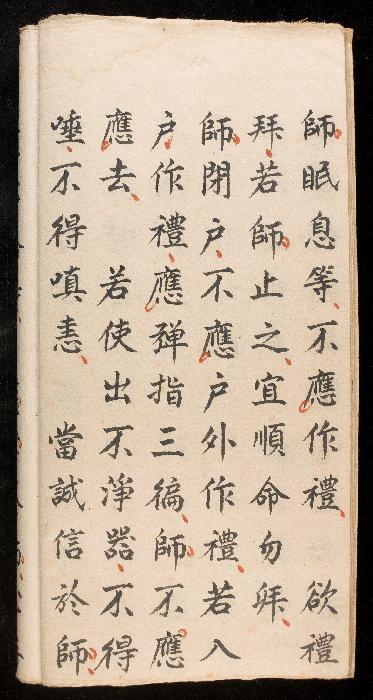 師眠息等不應作禮　欲禮
拜若師止之宜順命勿拜
師閉户不應户外作禮若入
户作禮應彈指三徧師不應
應去　若使出不淨器不得
唾不得嗔恚　當誠信於師